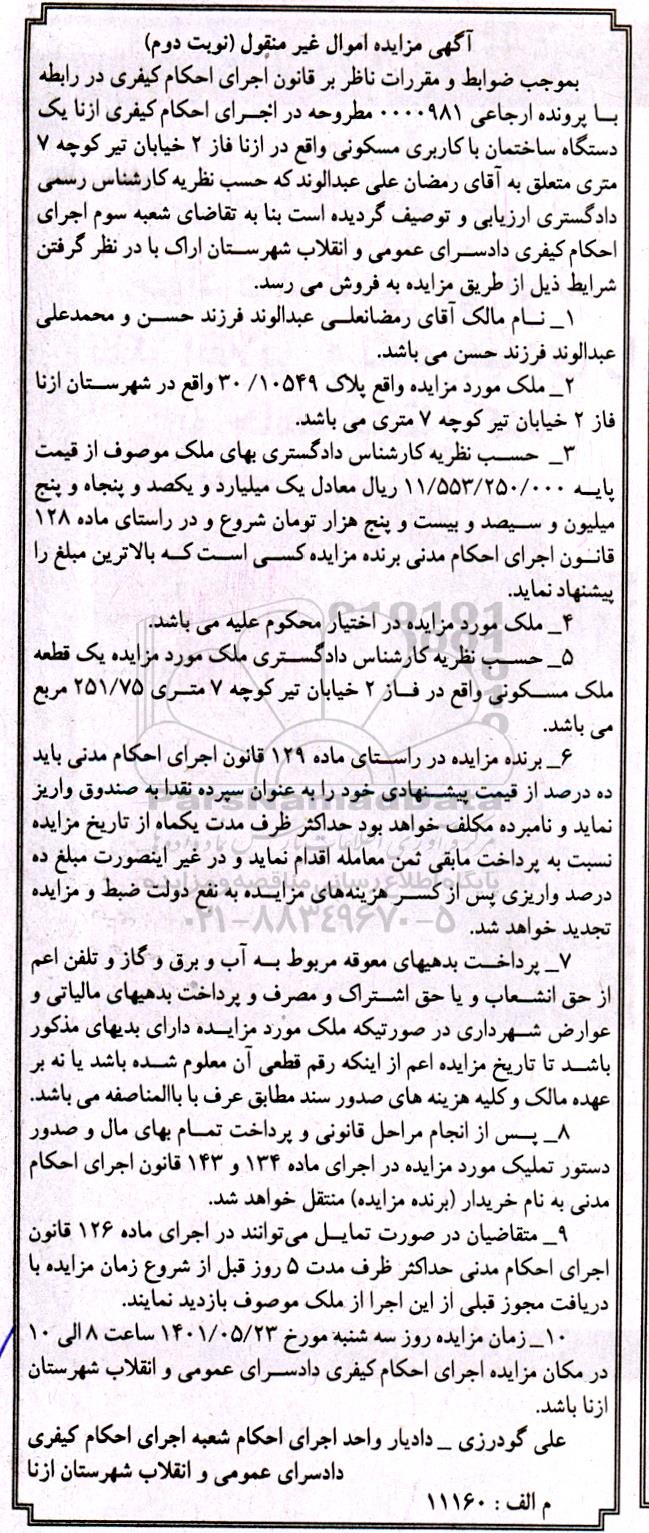 آگهی مزایده اموال غیر منقول (نوبت دوم)
بموجب ضوابط و مقررات ناظر بر قانون اجرای احکام کیفری در رابطه
با پرونده ارجاعی ۰۰۰۰۹۸۱ مطروحه در اجرای احکام کیفری ازنا یک
دستگاه ساختمان با کاربری مسکونی واقع در ازنا فاز ۲ خیابان تیر کوچه ۷
متری متعلق به آقای رمضان علی عبدالوند که حسب نظریه کارشناس رسمی
دادگستری ارزیابی و توصیف گردیده است بنا به تقاضای شعبه سوم اجرای
احکام کیفری دادسرای عمومی و انقلاب شهرستان اراک با در نظر گرفتن
شرایط ذیل از طریق مزایده به فروش می رسد.
۱_ نام مالک آقای رمضانعلی عبدالوند فرزند حسن و محمدعلی
عبدالوند فرزند حسن می باشد.
۲_ ملک مورد مزایده واقع پلاک ۱۰۵۴۹/ ۳۰ واقع در شهرستان ازنا
فاز ۲ خیابان تیر کوچه ۷ متری می باشد.
۳_ حسب نظریه کارشناس دادگستری بهای ملک موصوف از قیمت
پایه ۱۱/۵۵۳/۲۵۰/۰۰۰ ریال معادل یک میلیارد و یکصد و پنجاه و پنج
میلیون و سیصد و بیست و پنج هزار تومان شروع و در راستای ماده ۱۲۸
قانون اجرای احکام مدنی برنده مزایده کسی است که بالاترین مبلغ را
پیشنهاد نماید.
۴_ ملک مورد مزایده در اختیار محکوم علیه می باشد.
۵_ حسب نظریه کارشناس دادگستری ملک مورد مزایده یک قطعه
ملک مسکونی واقع در فاز ۲ خیابان تیر کوچه ۷ متری ۲۵۱/۷۵ مربع
می باشد.
۶_ برنده مزایده در راستای ماده ۱۲۹ قانون اجرای احکام مدنی باید
ده درصد از قیمت پیشنهادی خود را به عنوان سپرده نقدا به صندوق واریز
ParsNamadData
نماید و نامبرده مکلف خواهد بود حداکثر ظرف مدت یکماه از تاریخ مزایده
نسبت به پرداخت مابقی ثمن معامله اقدام نماید و در غیر اینصورت مبلغ ده
پایگاه اطلاع رسانی مناقصه و مزایده
درصد واریزی پس از کسر هزینه‌های مزایده به نفع دولت ضبط و مزایده
۰۲۱-۸۸۳۴۹۶۷۰-۵
تجدید خواهد شد.
۷_ پرداخت بدهیهای معوقه مربوط به آب و برق و گاز و تلفن اعم
از حق انشعاب و یا حق اشتراک و مصرف و پرداخت بدهیهای مالیاتی و
عوارض شهرداری در صورتیکه ملک مورد مزایده دارای بدیهای مذکور
باشد تا تاریخ مزایده اعم از اینکه رقم قطعی آن معلوم شده باشد یا نه بر
عهده مالک و کلیه هزینه های صدور سند مطابق عرف با باالمناصفه می باشد.
۸_ پس از انجام مراحل قانونی و پرداخت تمام بهای مال و صدور
دستور تملیک مورد مزایده در اجرای ماده ۱۳۴ و ۱۴۳ قانون اجرای احکام
مدنی به نام خریدار (برنده مزایده) منتقل خواهد شد.
۹_ متقاضیان در صورت تمایل می‌توانند در اجرای ماده ۱۲۶ قانون
اجرای احکام مدنی حداکثر ظرف مدت ۵ روز قبل از شروع زمان مزایده با
دریافت مجوز قبلی از این اجرا از ملک موصوف بازدید نمایند.
۱۰_ زمان مزایده روز سه شنبه مورخ ۱۴۰۱/۰۵/۲۳ ساعت ۸ الی ۱۰
در مکان مزایده اجرای احکام کیفری دادسرای عمومی و انقلاب شهرستان
ازنا باشد.
علی گودرزی _ دادیار واحد اجرای احکام شعبه اجرای احکام کیفری
دادسرای عمومی و انقلاب شهرستان ازنا
م الف : ۱۱۱۶۰